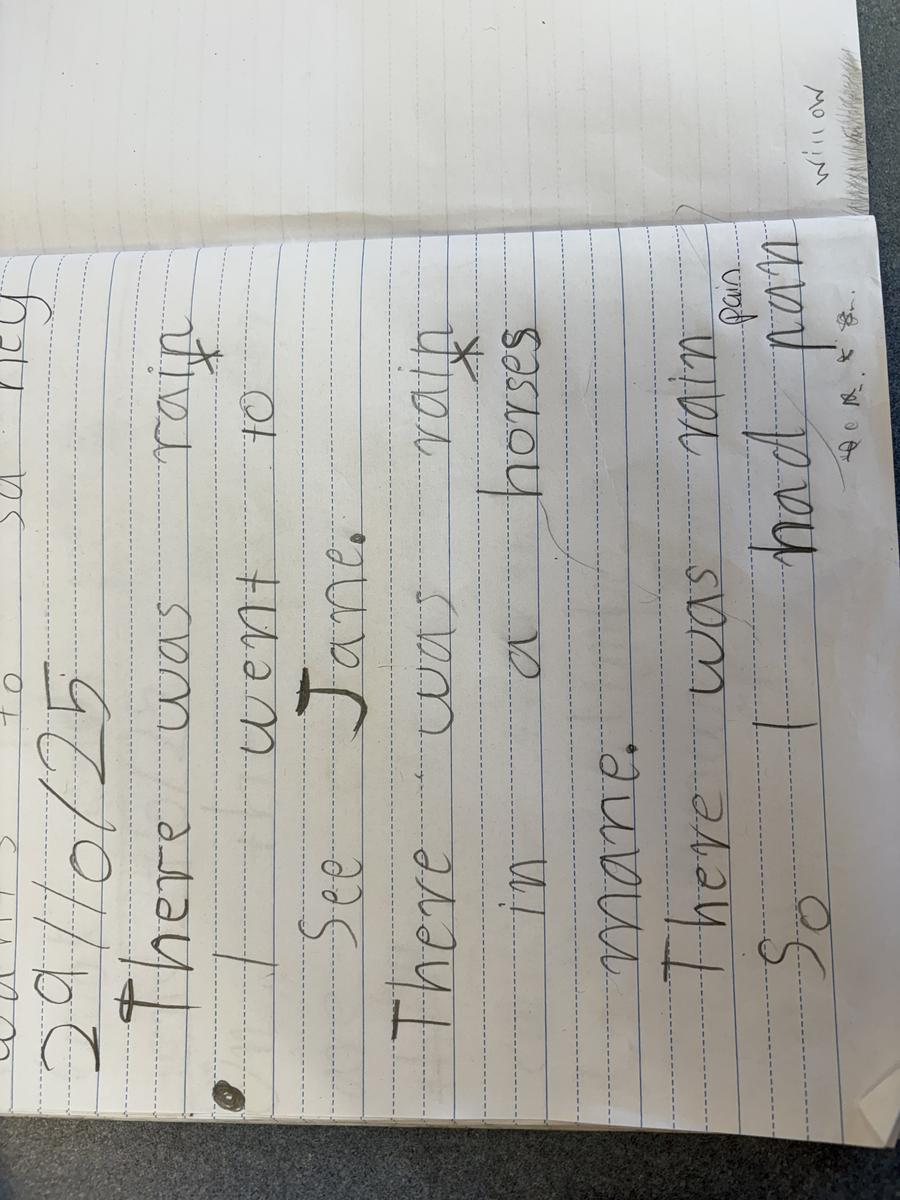 29/10/25
There was rain
I went to
See Jane.
There was rain
in a horses
mane.
There was rain
pain
So I had pan
willow